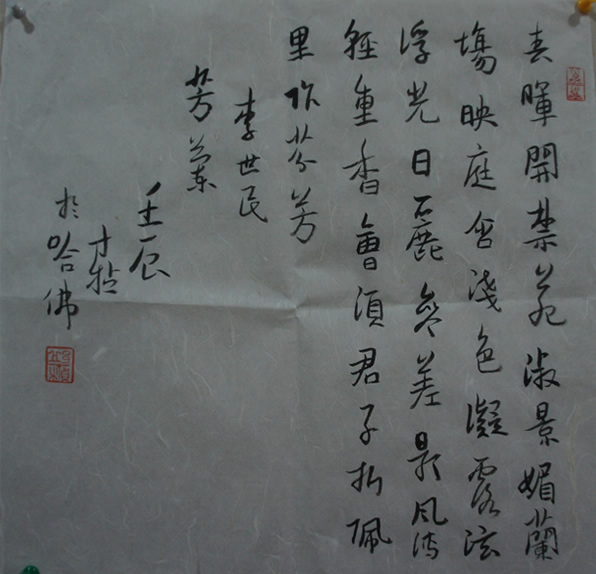 春暉開禁苑淑景媚蘭
場映庭含淺色凝露泫
浮光日麗參差影風傳
輕重香會須君子折佩
里作芬芳
李世民
芳蘭
壬辰
才
於哈佛